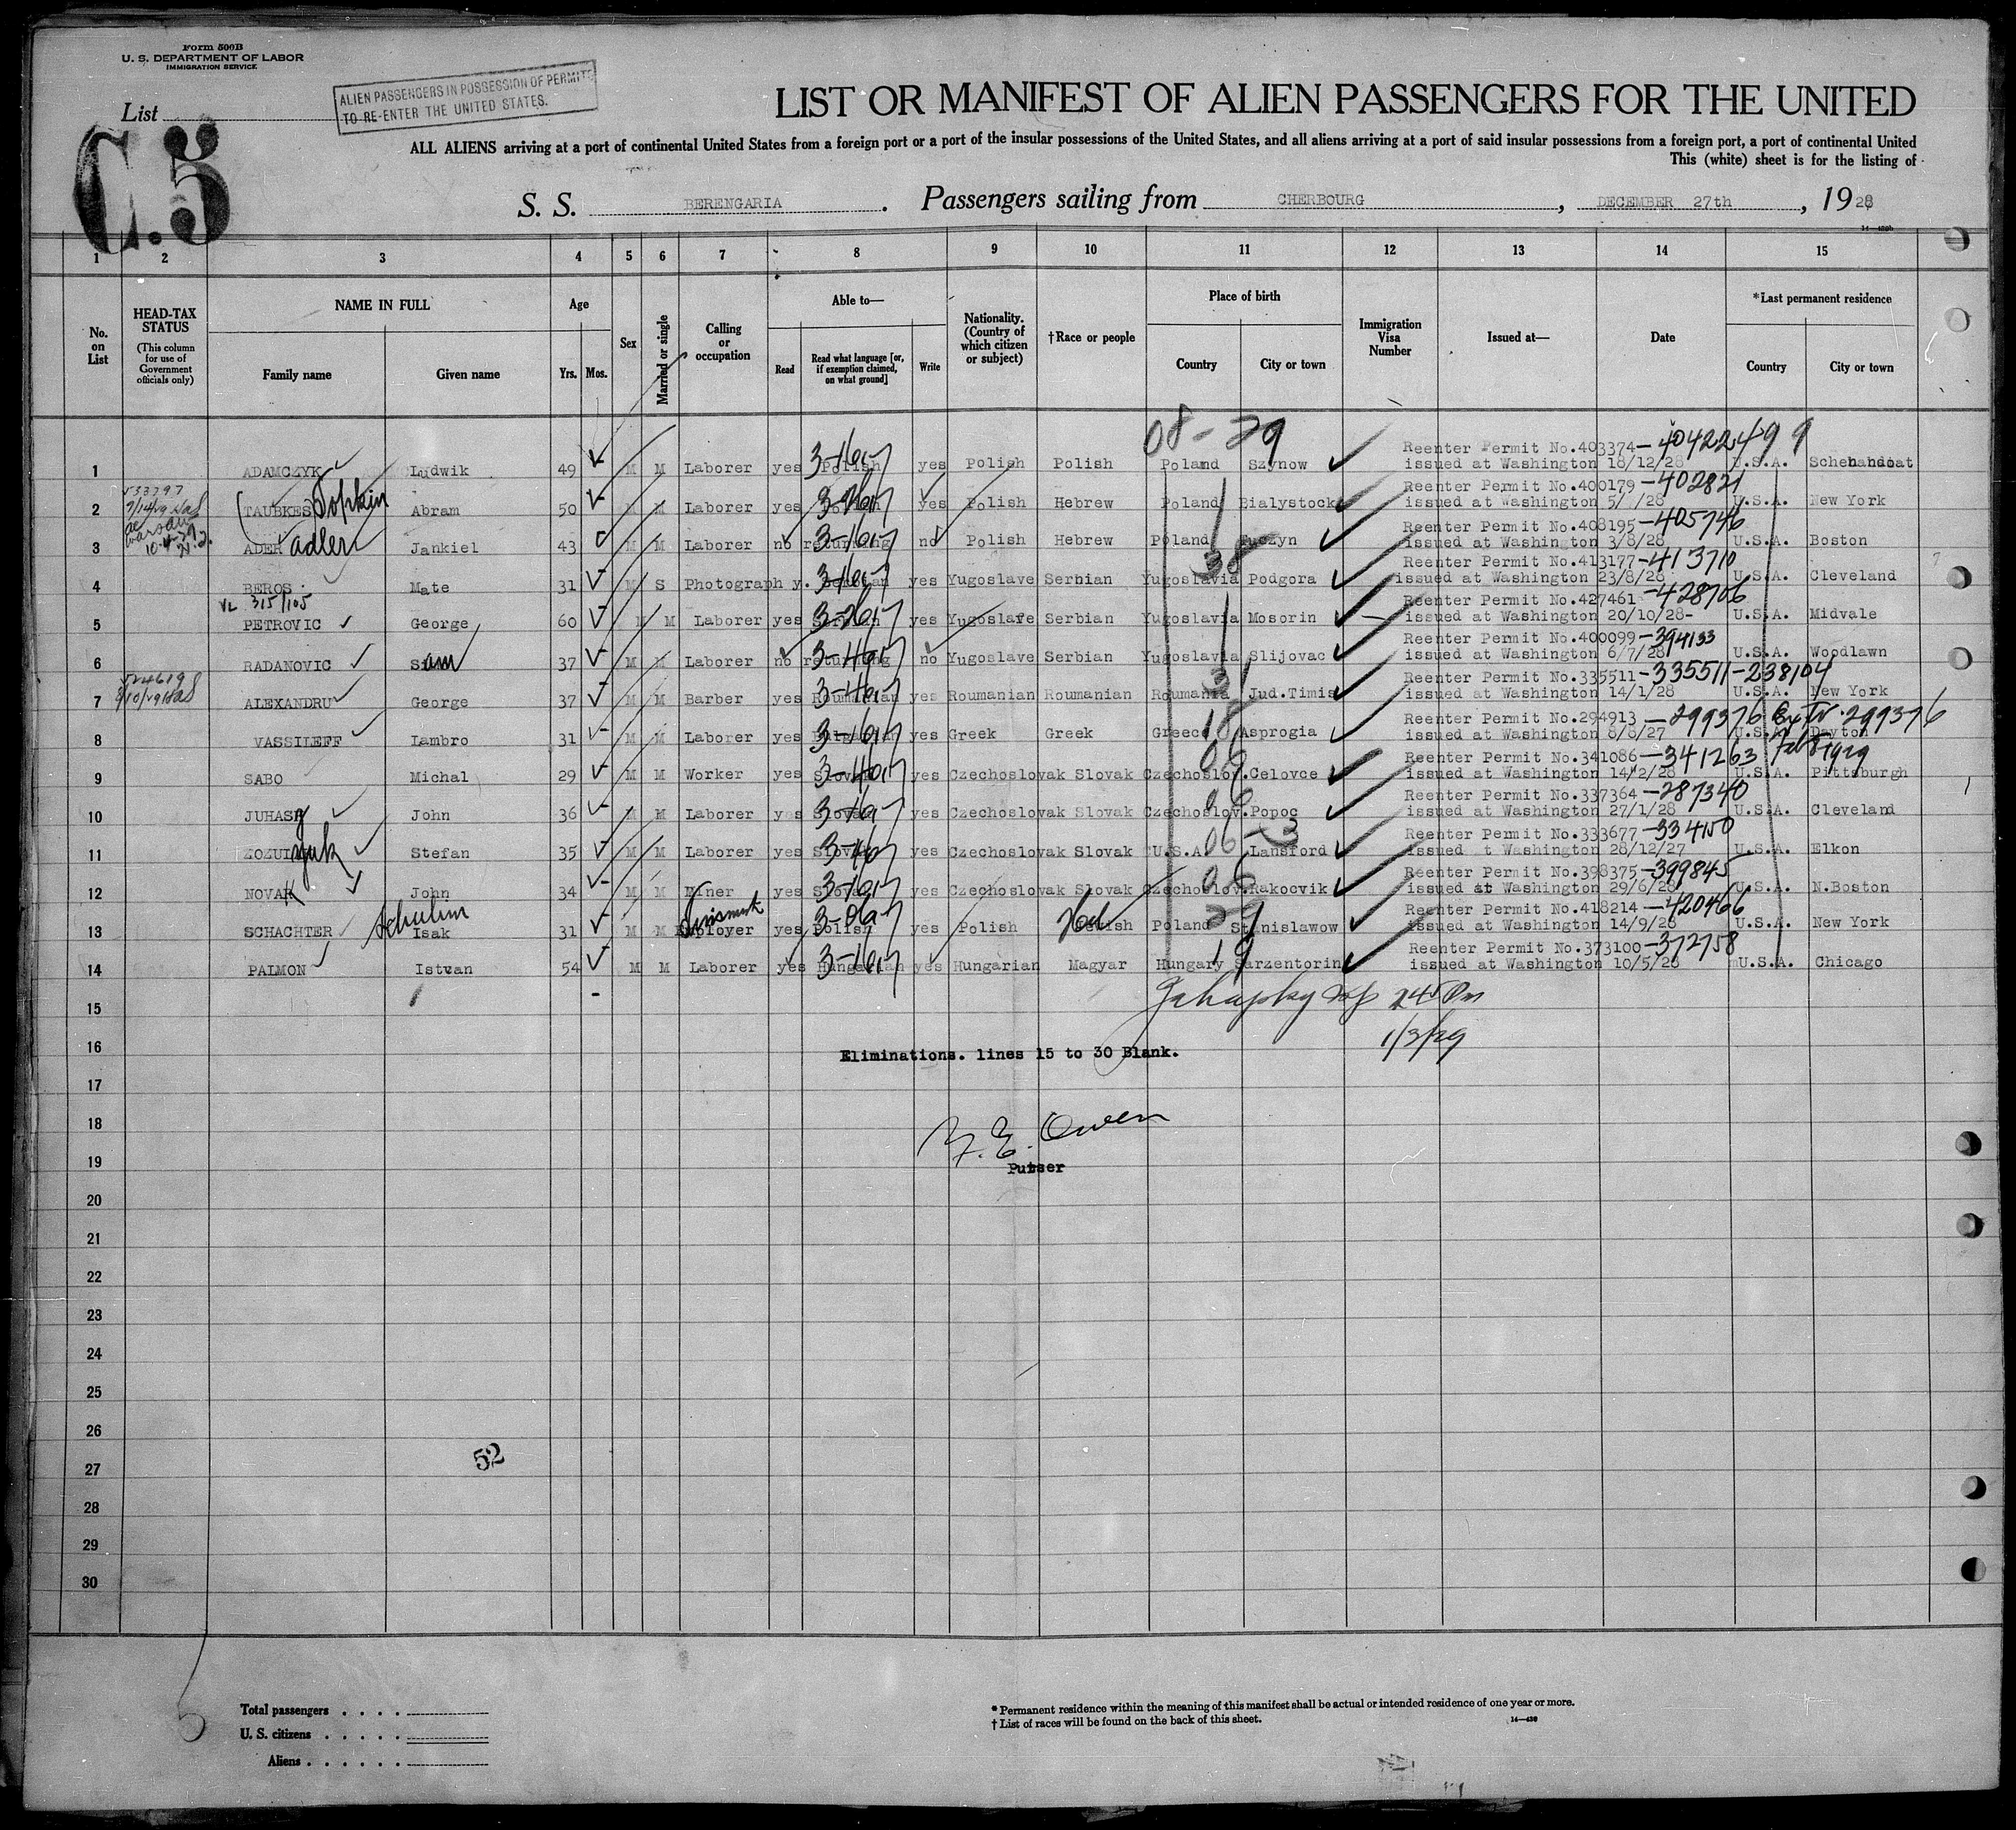 Form 500B
U. S. DEPARTMENT OF LABOR
IMMIGRATION SERVICE
ALIEN PASSENGERS IN POSSESSION OF PERMITS
TO RE-ENTER THE UNITED STATES.
List
C.5
LIST OR MANIFEST OF ALIEN PASSENGERS FOR THE UNITED
ALL ALIENS arriving at a port of continental United States from a foreign port or a port of the insular possessions of the United States, and all aliens arriving at a port of said insular possessions from a foreign port, a port of continental United
This (white) sheet is for the listing of
S. S. BERENGARIA. Passengers sailing from CHERBOURG, DECEMBER 27th, 1928
1 2 3 4 5 6 7 8 9 10 11 12 13 14 15
No. on List
HEAD-TAX STATUS (This column for use of Government officials only)
NAME IN FULL Family name Given name
Age Yrs. Mos.
Sex
Married or single
Calling or occupation
Able to— Read Read what language [or, if exemption claimed, on what ground] Write
Nationality. (Country of which citizen or subject)
†Race or people
Place of birth Country City or town
Immigration Visa Number
Issued at—
Date
*Last permanent residence Country City or town
08-29
Reenter Permit No.403374-404224 99
1 ADAMCZYK Ludwik 49 M M Laborer yes Polish 3-16-7 yes Polish Polish Poland Szynow issued at Washington 18/12/28 U.S.A.
Reenter Permit No.400179-402821
2 TAUBKES Sopkin Abram 50 M M Laborer yes yes Polish Hebrew Poland Bialystock issued at Washington 5/ /28 U.S.A. New York
Reenter Permit No.408195-405746
3 ADER Adler Jankiel 43 M M Laborer no returning no Polish Hebrew Poland issued at Washington 3/8/28 U.S.A. Boston
Reenter Permit No.413177-413710
4 BEROS Mate 31 M S Photography. yes Yugoslave Serbian Yugoslavia Podgora issued at Washington 23/8/28 U.S.A. Cleveland
VL 315/105
Reenter Permit No.427461-428706
5 PETROVIC George 60 M M Laborer yes yes Yugoslave Serbian Yugoslavia Mosorin issued at Washington 20/10/28- U.S.A. Midvale
Reenter Permit No.400099-394133
6 RADANOVIC Sam 37 M M Laborer no returning no Yugoslave Serbian Yugoslavia Slijovac issued at Washington 6/7/28 U.S.A. Woodlawn
Reenter Permit No.335511-335511-238104
7 ALEXANDRU George 37 M M Barber yes Roumanian yes Roumanian Roumanian Roumania Jud.Timis issued at Washington 14/1/28 U.S.A. New York
Reenter Permit No.294913-299376 Ext. 299376
8 VASSILEFF Lambro 31 M M Laborer yes yes Greek Greek Greece Asprogia issued at Washington 8/8/27 U.S.A. Dayton
Reenter Permit No.341086-341263 Feb 8 1929
9 SABO Michal 29 M M Worker yes Slovak yes Czechoslovak Slovak Czechoslov. Celovce issued at Washington 14/2/28 U.S.A. Pittsburgh
Reenter Permit No.337364-287340
10 JUHASZ John 36 M M Laborer yes Slovak yes Czechoslovak Slovak Czechoslov. Popoc issued at Washington 27/1/28 U.S.A. Cleveland
Reenter Permit No.333677-334150
11 Stefan 35 M M Laborer yes Slovak yes Czechoslovak Slovak U.S.A. Lansford issued at Washington 28/12/27 U.S.A. Elkon
Reenter Permit No.398375-399845
12 NOVAK John 34 M M Miner yes yes Czechoslovak Slovak Czechoslov. Rakocvik issued at Washington 29/6/28 U.S.A. N.Boston
Reenter Permit No.418214-420466
13 SCHACHTER Schulim Isak 31 M M yes Polish yes Polish Heb Poland Stanislawow issued at Washington 14/9/28 U.S.A. New York
Reenter Permit No.373100-372758
14 PALMON Istvan 54 M M Laborer yes Hungarian yes Hungarian Magyar Hungary Sarzentorin issued at Washington 10/5/28 U.S.A. Chicago
15 245 Pm
16 1/3/29
Eliminations. lines 15 to 30 Blank.
17
18 Owen
19 Purser
20
21
22
23
24
25
26
27 52
28
29
30
Total passengers
U. S. citizens
Aliens
* Permanent residence within the meaning of this manifest shall be actual or intended residence of one year or more.
† List of races will be found on the back of this sheet.